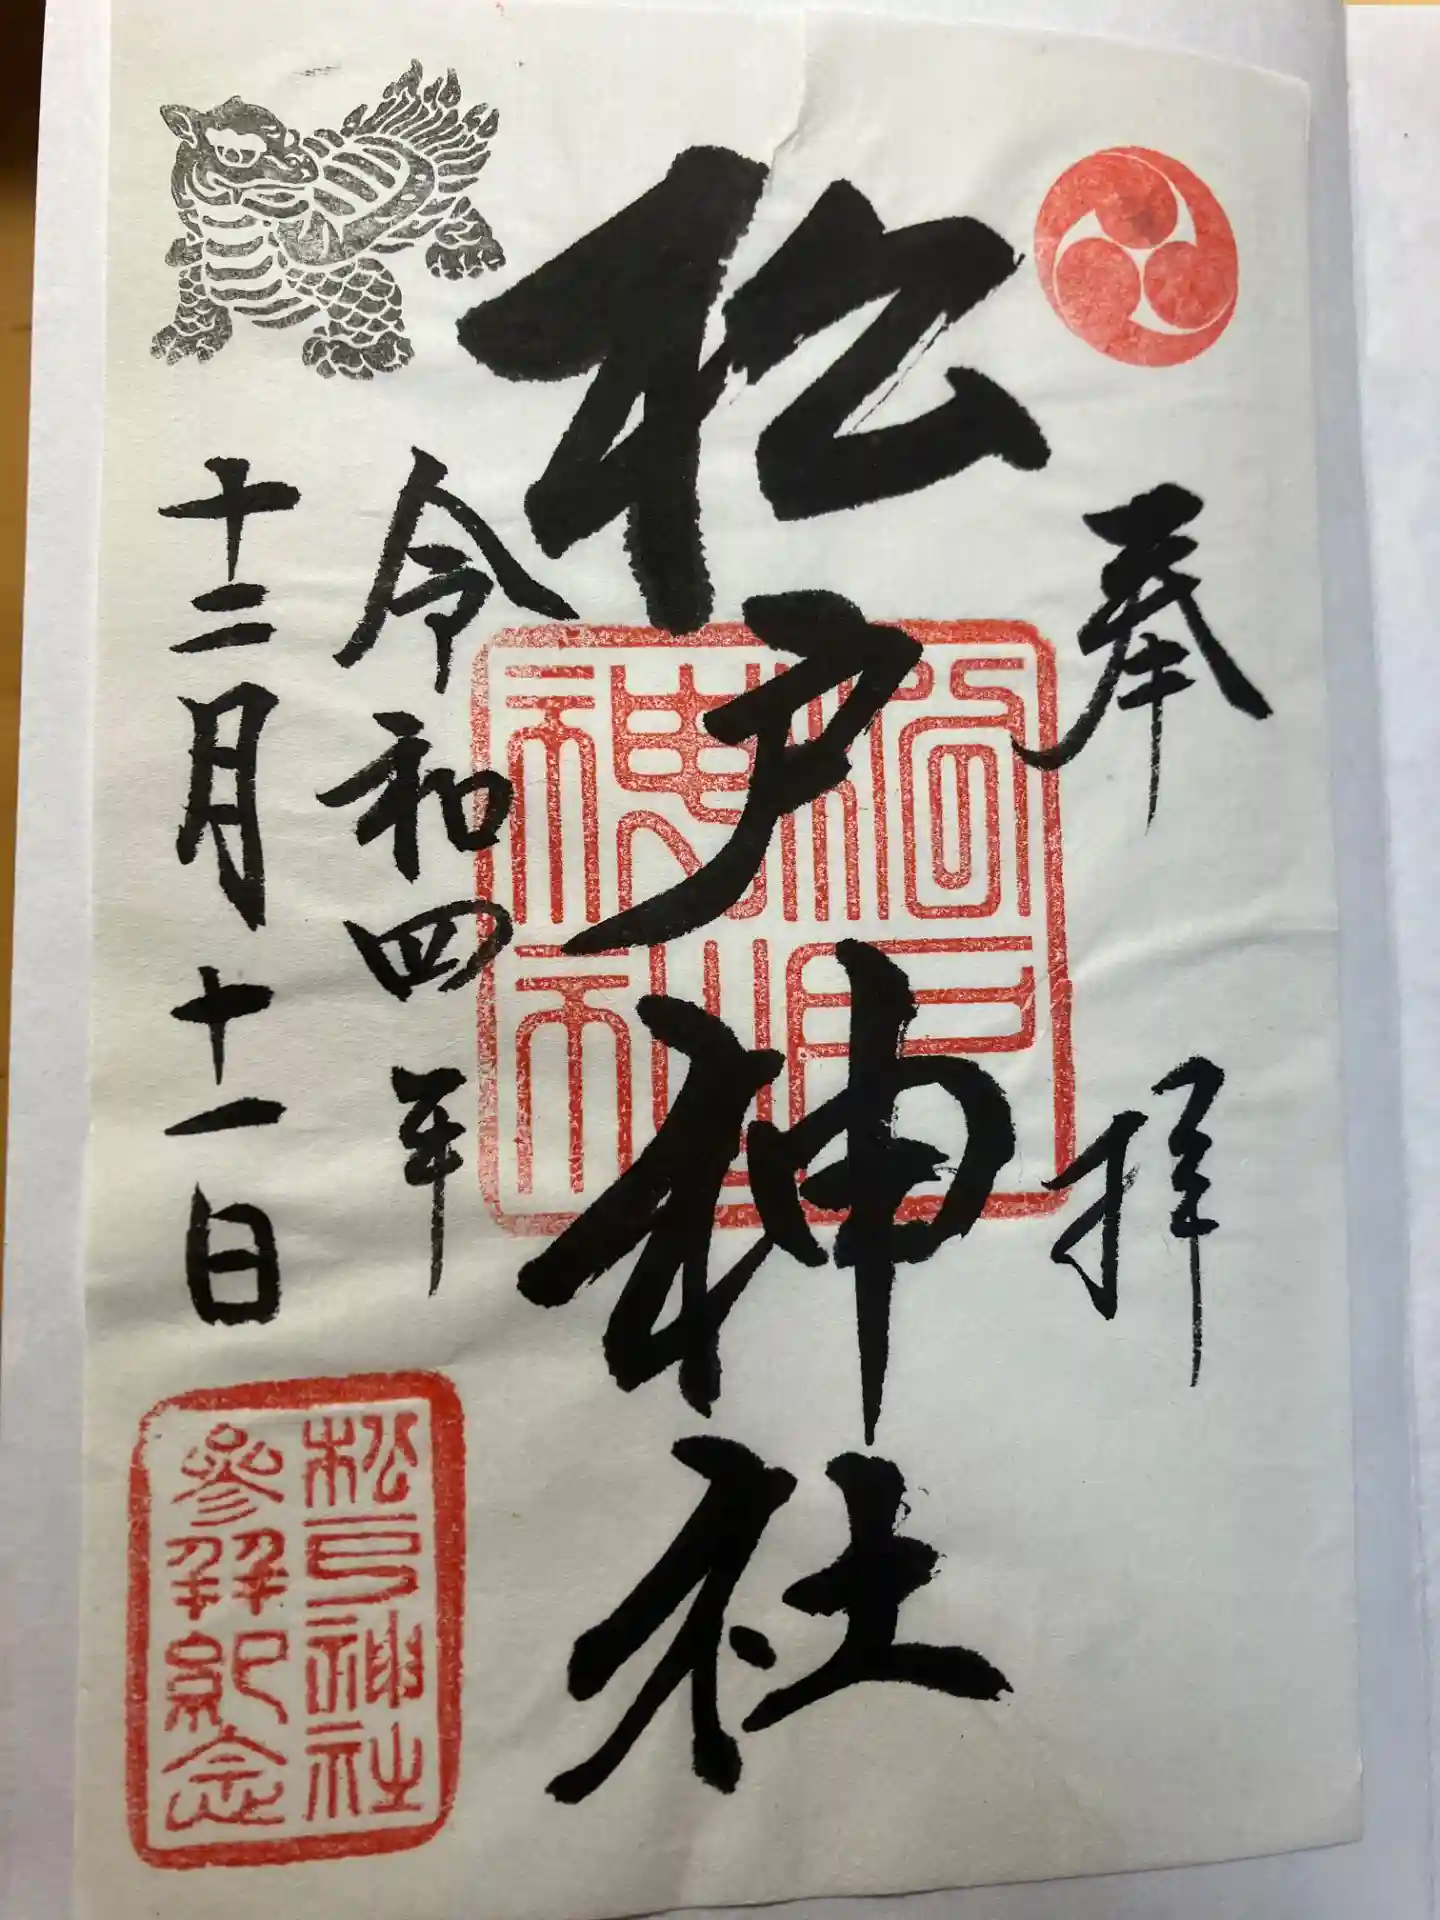 奉拝
松戸神社
松戸神社
令和四年
十二月十一日
松戸神社
參拜紀念